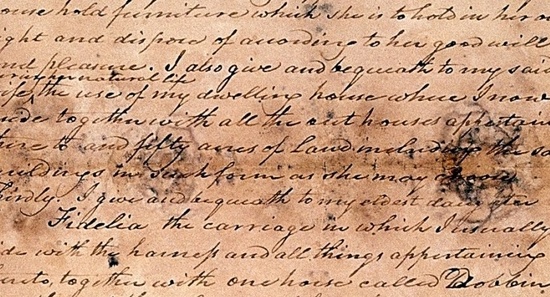 ouse hold furniture which she is to hold in her ow
ight and dispose of according to her good will
nd pleasure. I also give and bequeath to my said
natural life
ife, the use of my dwelling house where I now
side together with all the out houses appertain
to and fifty acres of land including the sa
uildings in such form as she may
hirdly. I give and bequeath to my eldest daughter
Fidelia the carriage in which I usually
ide with the harness and all things appertaining
together with one horse called Dobbin